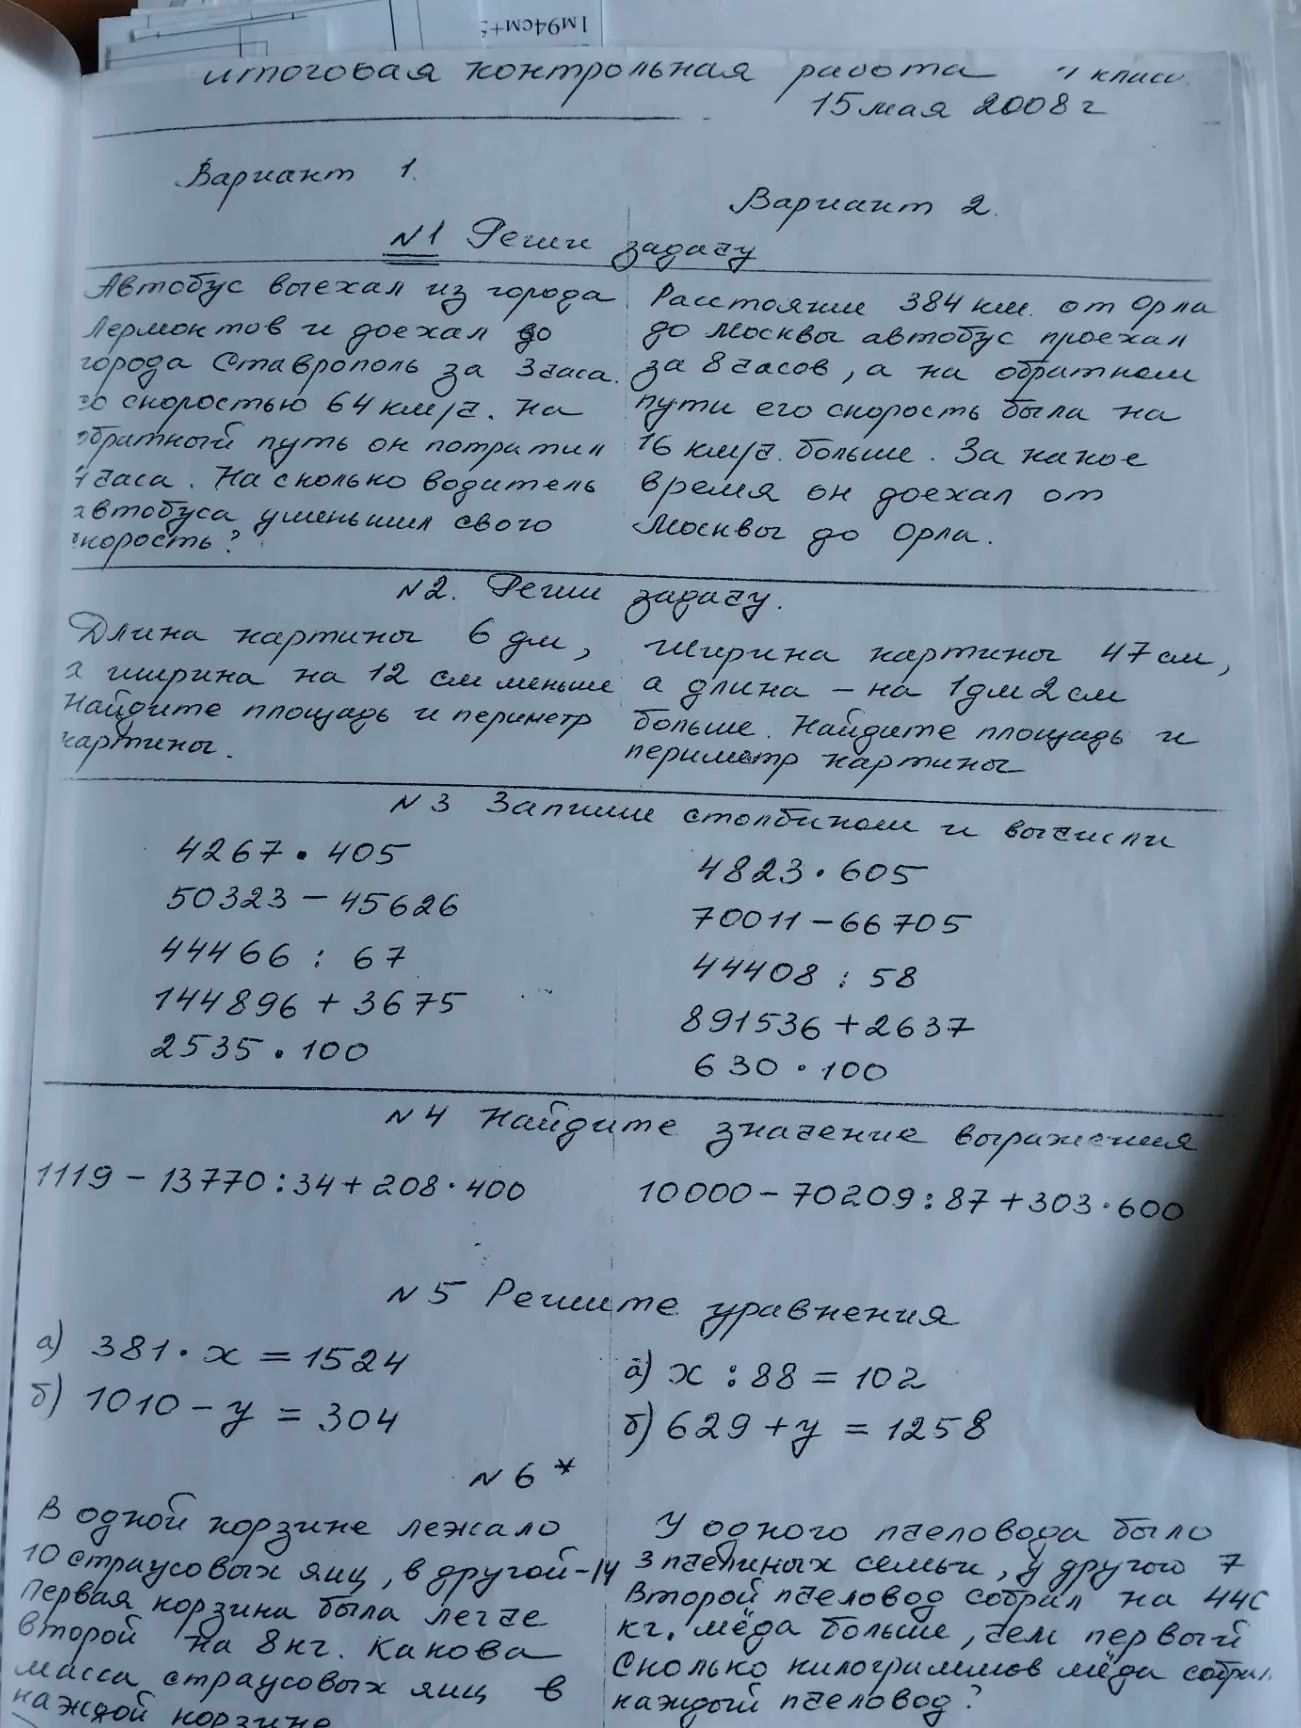 1м94см+
итоговая контрольная работа 4 класс.
15 мая 2008 г
Вариант 1.
Вариант 2.
N1 Реши задачу
Автобус выехал из города
Лермонтов и доехал до
города Ставрополь за 3 часа.
со скоростью 64 км/ч. На
обратный путь он потратил
4 часа. На сколько водитель
автобуса уменьшил свою
скорость?
Расстояние 384 км. от Орла
до Москвы автобус проехал
за 8 часов, а на обратном
пути его скорость была на
16 км/ч. больше. За какое
время он доехал от
Москвы до Орла.
N2. Реши задачу.
Длина картины 6 дм,
а ширина на 12 см меньше
Найдите площадь и периметр
картины.
Ширина картины 47 см,
а длина – на 1дм 2 см
больше. Найдите площадь и
периметр картины
N3 Запиши столбиком и вычисли
4267 · 405
50323 – 45626
44466 : 67
144896 + 3675
2535 · 100
4823 · 605
70011 – 66705
44408 : 58
891536 + 2637
630 · 100
N4 Найдите значение выражения
1119 – 13770 : 34 + 208 · 400
10000 – 70209 : 87 + 303 · 600
N5 Решите уравнения
а) 381 · х = 1524
б) 1010 – у = 304
а) х : 88 = 102
б) 629 + у = 1258
N6*
В одной корзине лежало
10 страусовых яиц, в другой – 14
Первая корзина была легче
второй на 8 кг. Какова
масса страусовых яиц в
каждой корзине
У одного пчеловода было
3 пчелиных семьи, у другого 7
Второй пчеловод собрал на 440
кг. мёда больше, чем первый
Сколько килограммов мёда собрал
каждый пчеловод?